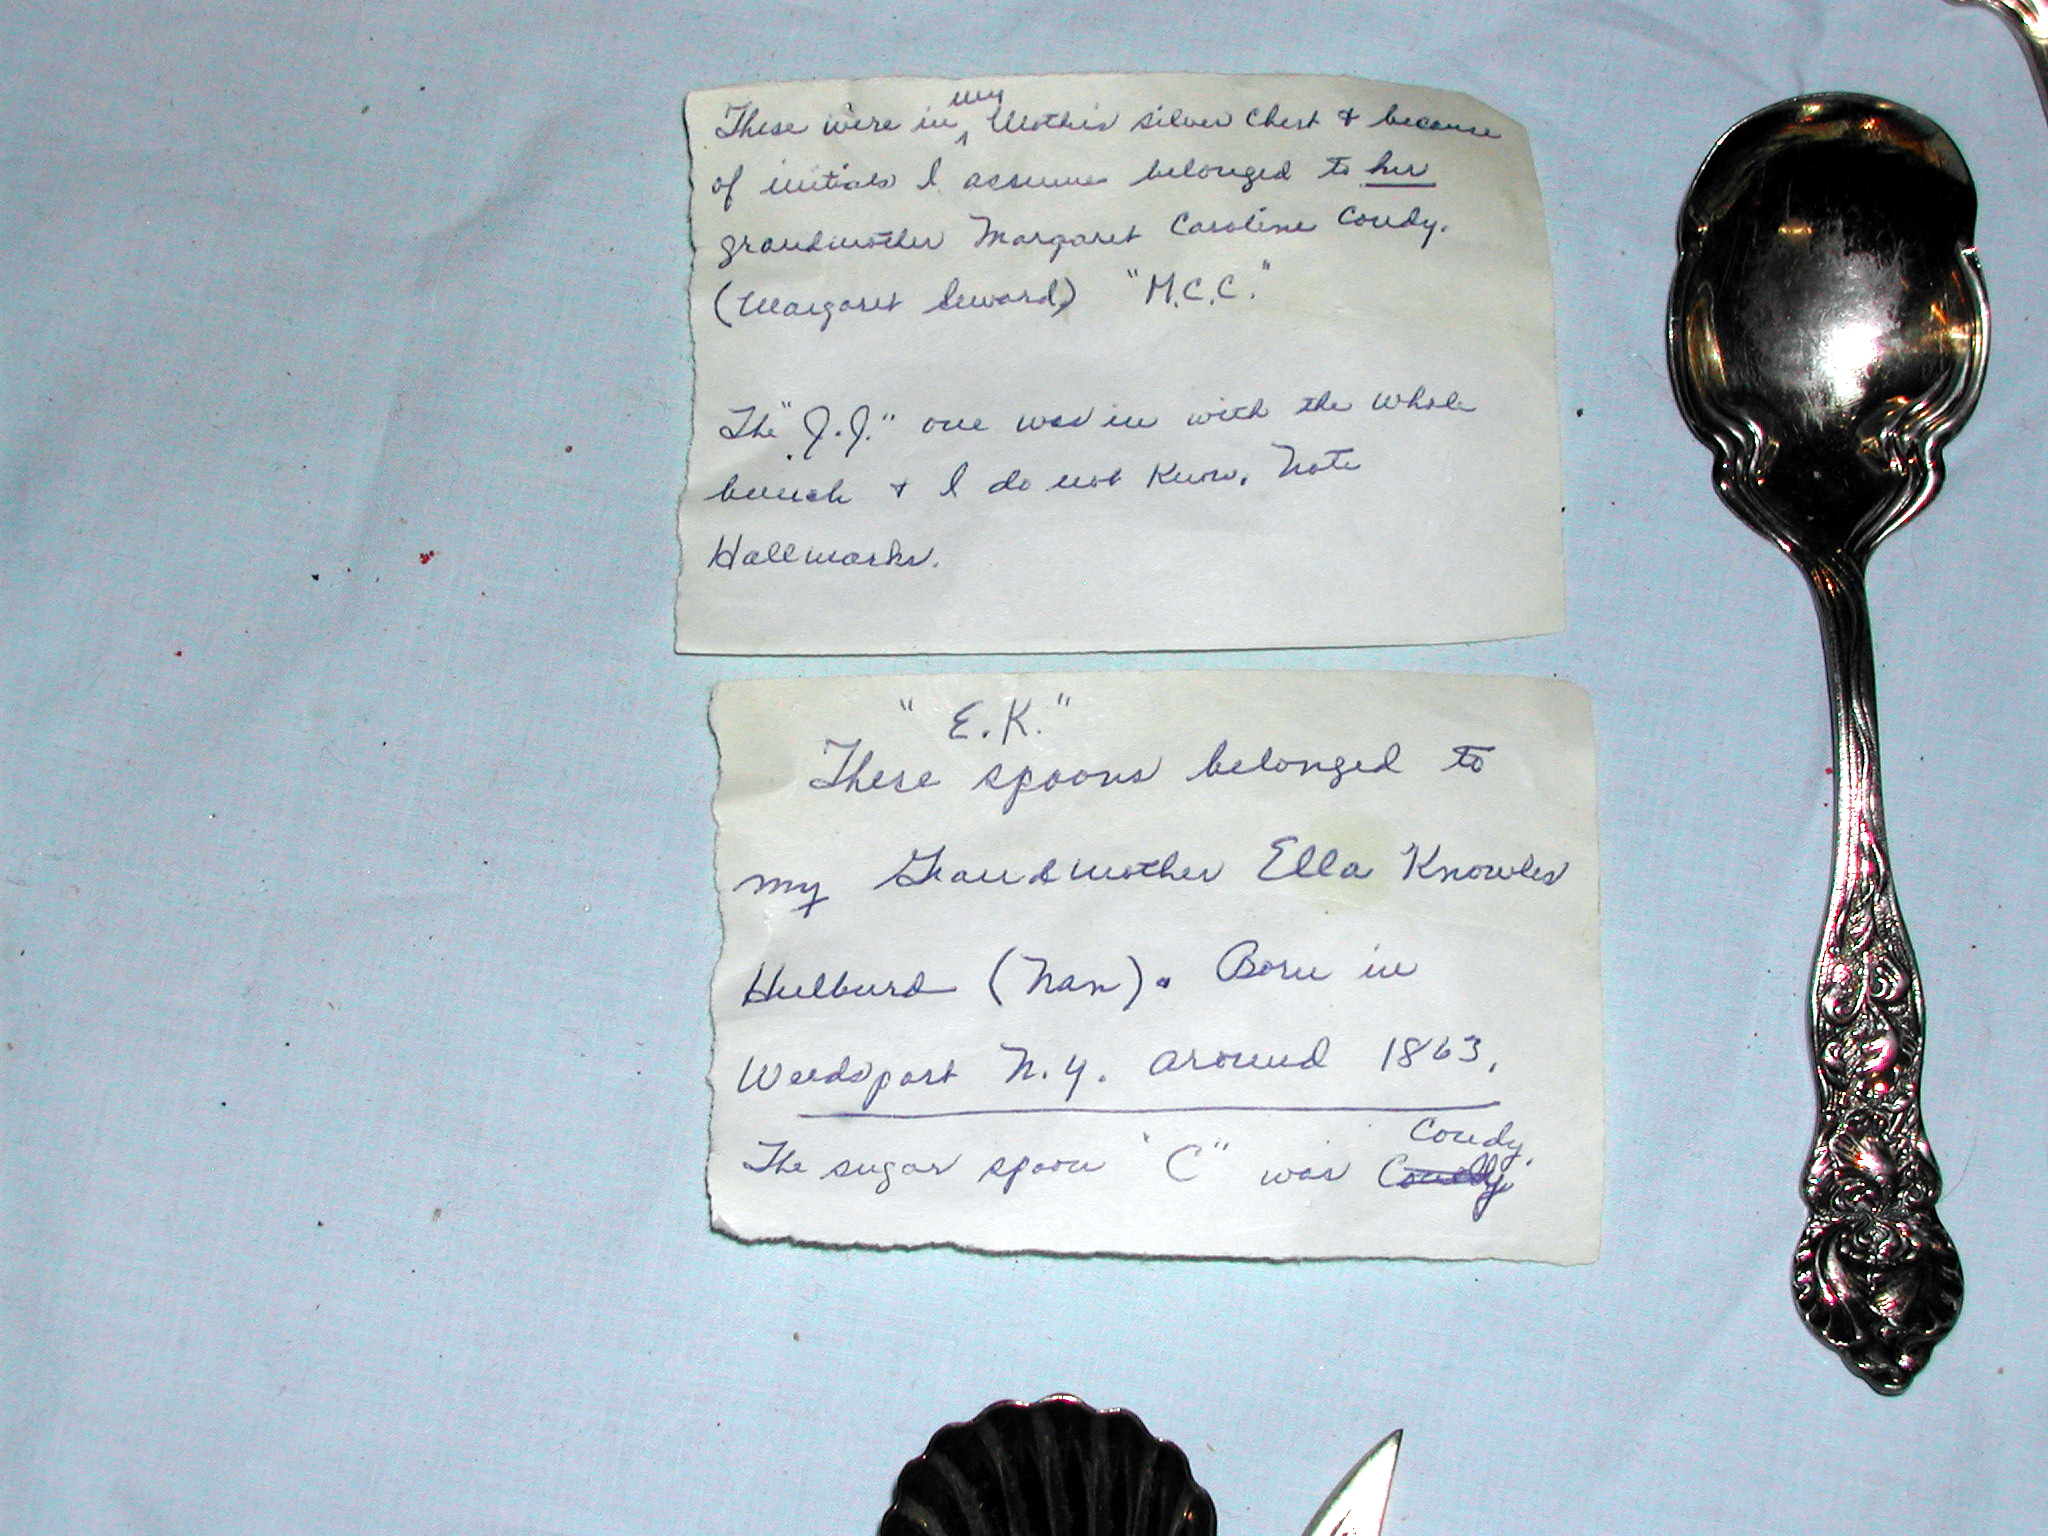 These were in my Mothers silver chest & because
of initials I assume belonged to her
grandmother Margaret Caroline Coudy.
(Margaret Seward) "M.C.C."
The "J.J." one was in with the whole
bunch & I do not know. Note
Hallmarks.
"E.K."
These spoons belonged to
my Grandmother Ella Knowles
Hulburd (Nan). Born in
Weedsport N.Y. around 1863.
The sugar spoon "C" was Coudy.